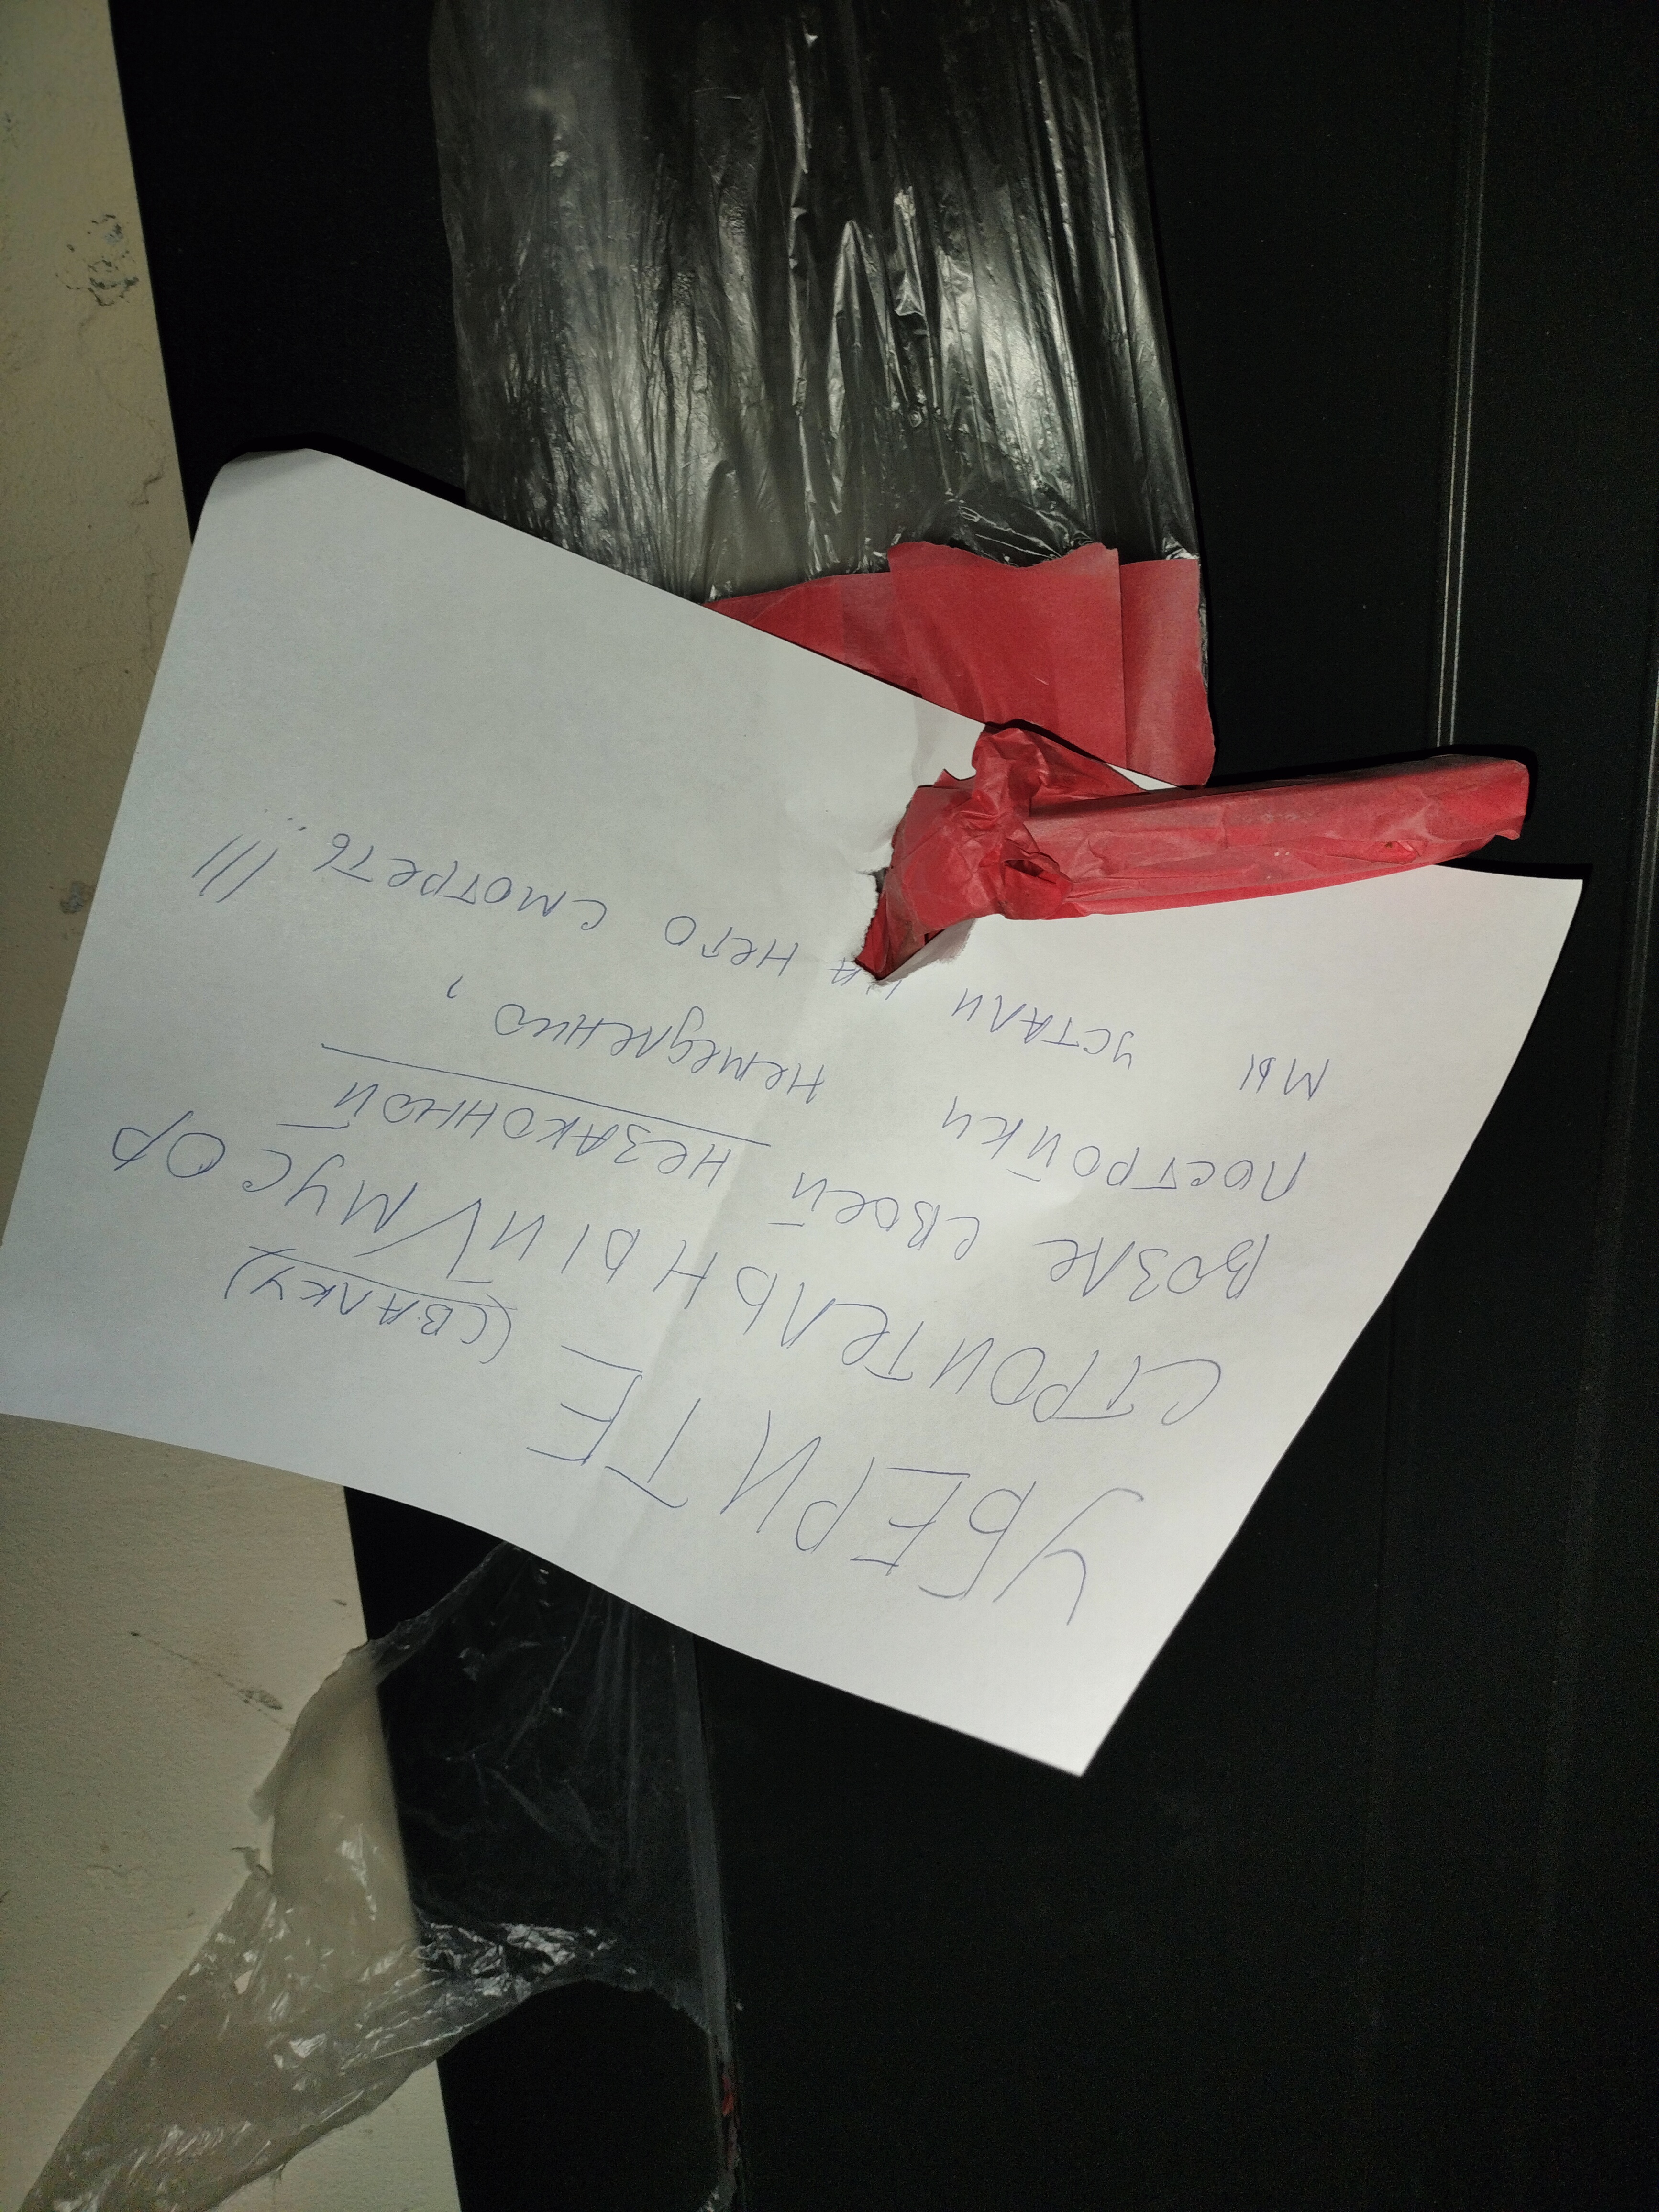 УБЕРИТЕ (СВАЛКУ)
СТРОИТЕЛЬНЫЙ V МУСОР
ВОЗЛЕ СВОЕЙ НЕЗАКОННОЙ
ПОСТРОЙКИ НЕМЕДЛЕННО,
МЫ УСТАЛИ НА НЕГО СМОТРЕТЬ!!!